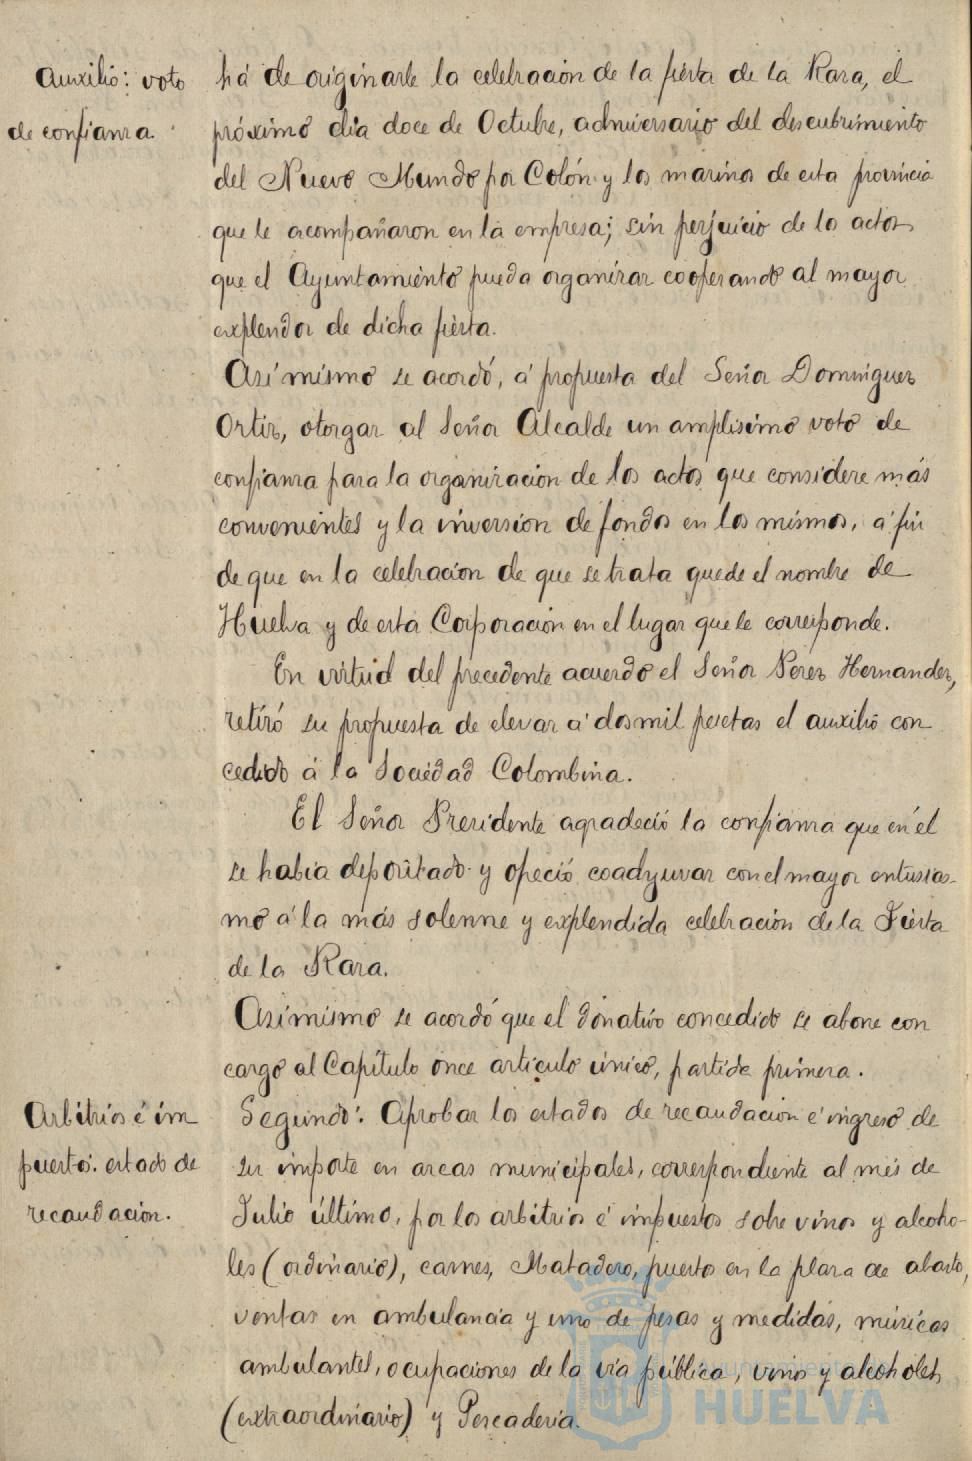 Auxilio: voto
de confianza
há de originarle la celebración de la fiesta de la Raza, el
próximo dia doce de Octubre, adniversario del descubrimiento
del Nuevo Mundo por Colón y los marinos de esta provincia
que le acompañaron en la empresa; sin perjuicio de los actos
que el Ayuntamiento pueda organizar cooperando al mayor
explendor de dicha fiesta.
Asímismo se acordó, á propuesta del Señor Dominguez
Ortiz, otorgar al Señor Alcalde un amplisimo voto de
confianza para la organización de los actos que considere más
convenientes y la inversion de fondos en los mismos, á fin
de que en la celebracion de que se trata quede el nombre de
Huelva y de esta Corporacion en el lugar que le corresponde.
En virtud del precedente acuerdo el Señor Perez Hernandez,
retiró su propuesta de elevar á dos mil pesetas el auxilio con
cedido á la Sociedad Colombina.
El Señor Presidente agradeció la confianza que en él
se habia depositado y ofreció coadyuvar con el mayor entusias-
mo á la más solemne y explendida celebración de la Fiesta
de la Raza.
Asímismo se acordó que el donativo concedido se abone con
cargo al Capítulo once artículo único, partida primera.
Arbitrios é im
puestos: estado de
recaudacion.
Segundo: Aprobar los estados de recaudacion é ingreso de
su importe en arcas municipales, correspondiente al més de
Julio último, por los arbitrios é impuestos sobre vinos y alcoho-
les (ordinario), carnes, Matadero, puestos en la plaza de abasto,
ventas en ambulancia y uso de pesas y medidas, músicos
ambulantes, ocupaciones de la via pública, vinos y alcoholes
(extraordinario) y Pescaderia.
Ayuntamiento de
HUELVA